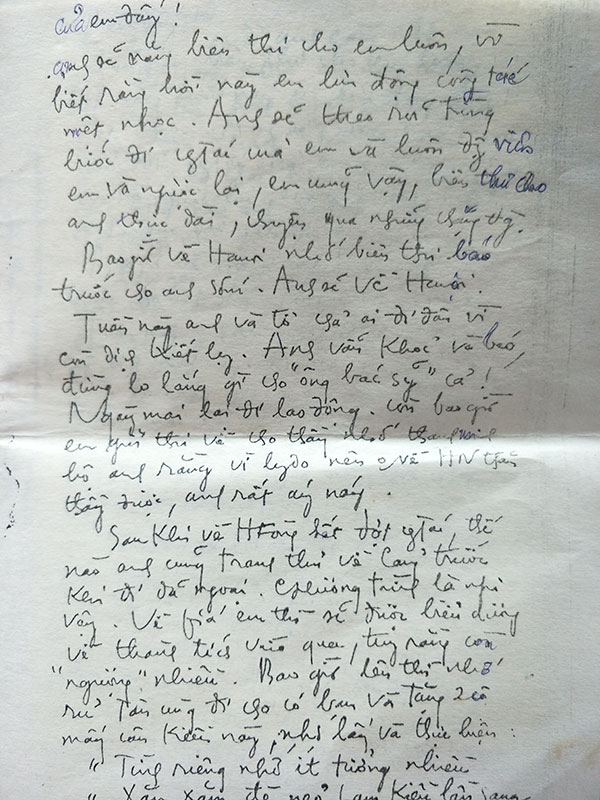 của em đấy!
Anh sẽ năng biên thư cho em luôn, vì
biết rằng hồi này em lên đông công tác
mệt nhọc. Anh sẽ theo rõi từng
bước đi của em và luôn động viên
em và ngược lại, em cũng vậy, biên thư cho
anh thực dài, chuyện qua những chặng đg.
Bao giờ về Hanoi nhớ biên thư báo
trước cho anh sớm. Anh sẽ về Hanoi.
Tuần này anh và tổ chả ai đi đâu vì
còn dịch kiết lỵ. Anh vẫn khoẻ và béo,
đừng lo lắng gì cho "ông bác sỹ" cả!
Ngày mai lại đi lao động. Còn bao giờ
em gửi thư về cho thầy nhớ thanh minh
hộ anh rằng vì lý do nên về HN thăm
thầy được, anh rất áy náy.
Sau khi về hết đợt thế
nào anh cũng tranh thủ về Cảng trước
khi đi dã ngoại. Chương trình là như
vậy. Về em thì sẽ được biểu dương
về thành tích vừa qua, tuy rằng còn
"ngượng" nhiều. Bao giờ lên thì nhớ
rủ Tân cùng đi cho có bạn và tặng 2 cô
mấy câu Kiều này, nhớ lấy và thực hiện:
" Tình riêng nhớ ít tưởng nhiều
" Xăm xăm đè nẻo Lam Kiều lần sang